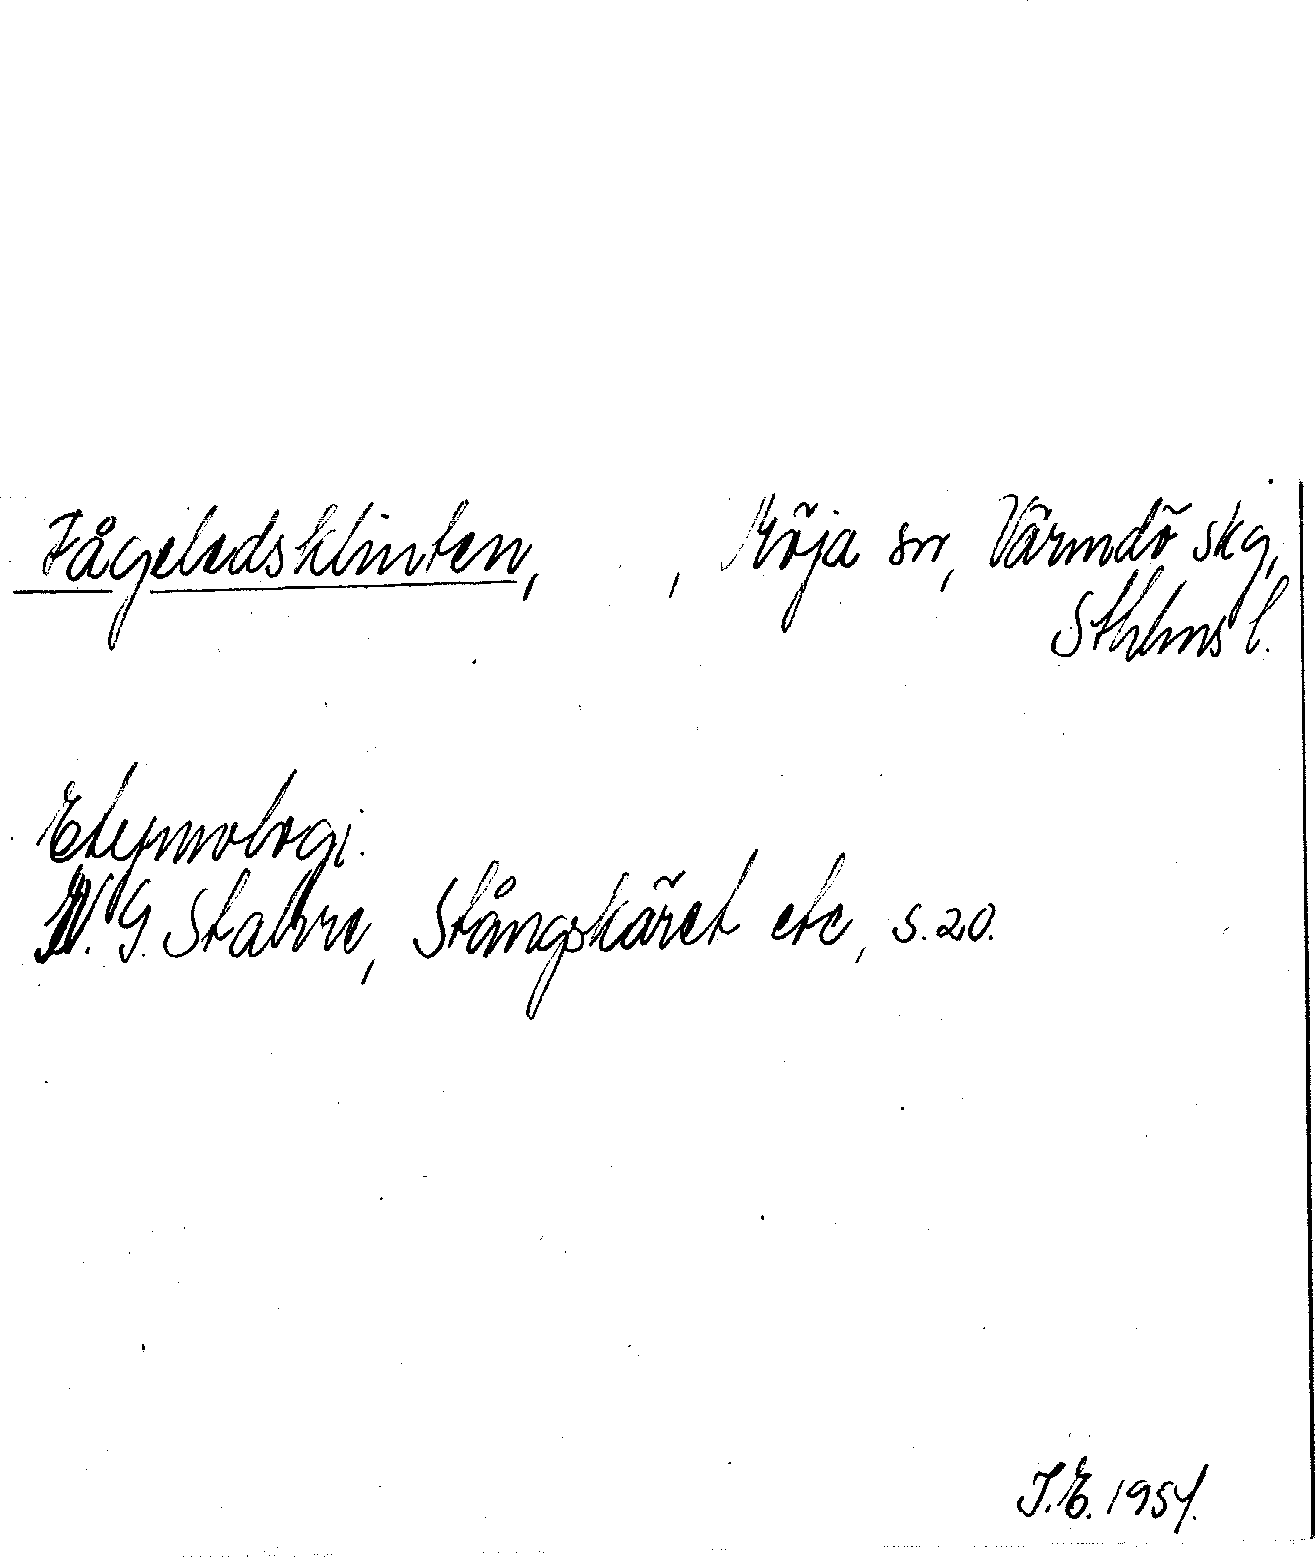 Fågeledsklinten, , Möja sn, Värmdö skg,
Sthlms l.
Etymologi.
N. G. Stahre, Stångskäret etc, s. 20.
I. E. 1954.